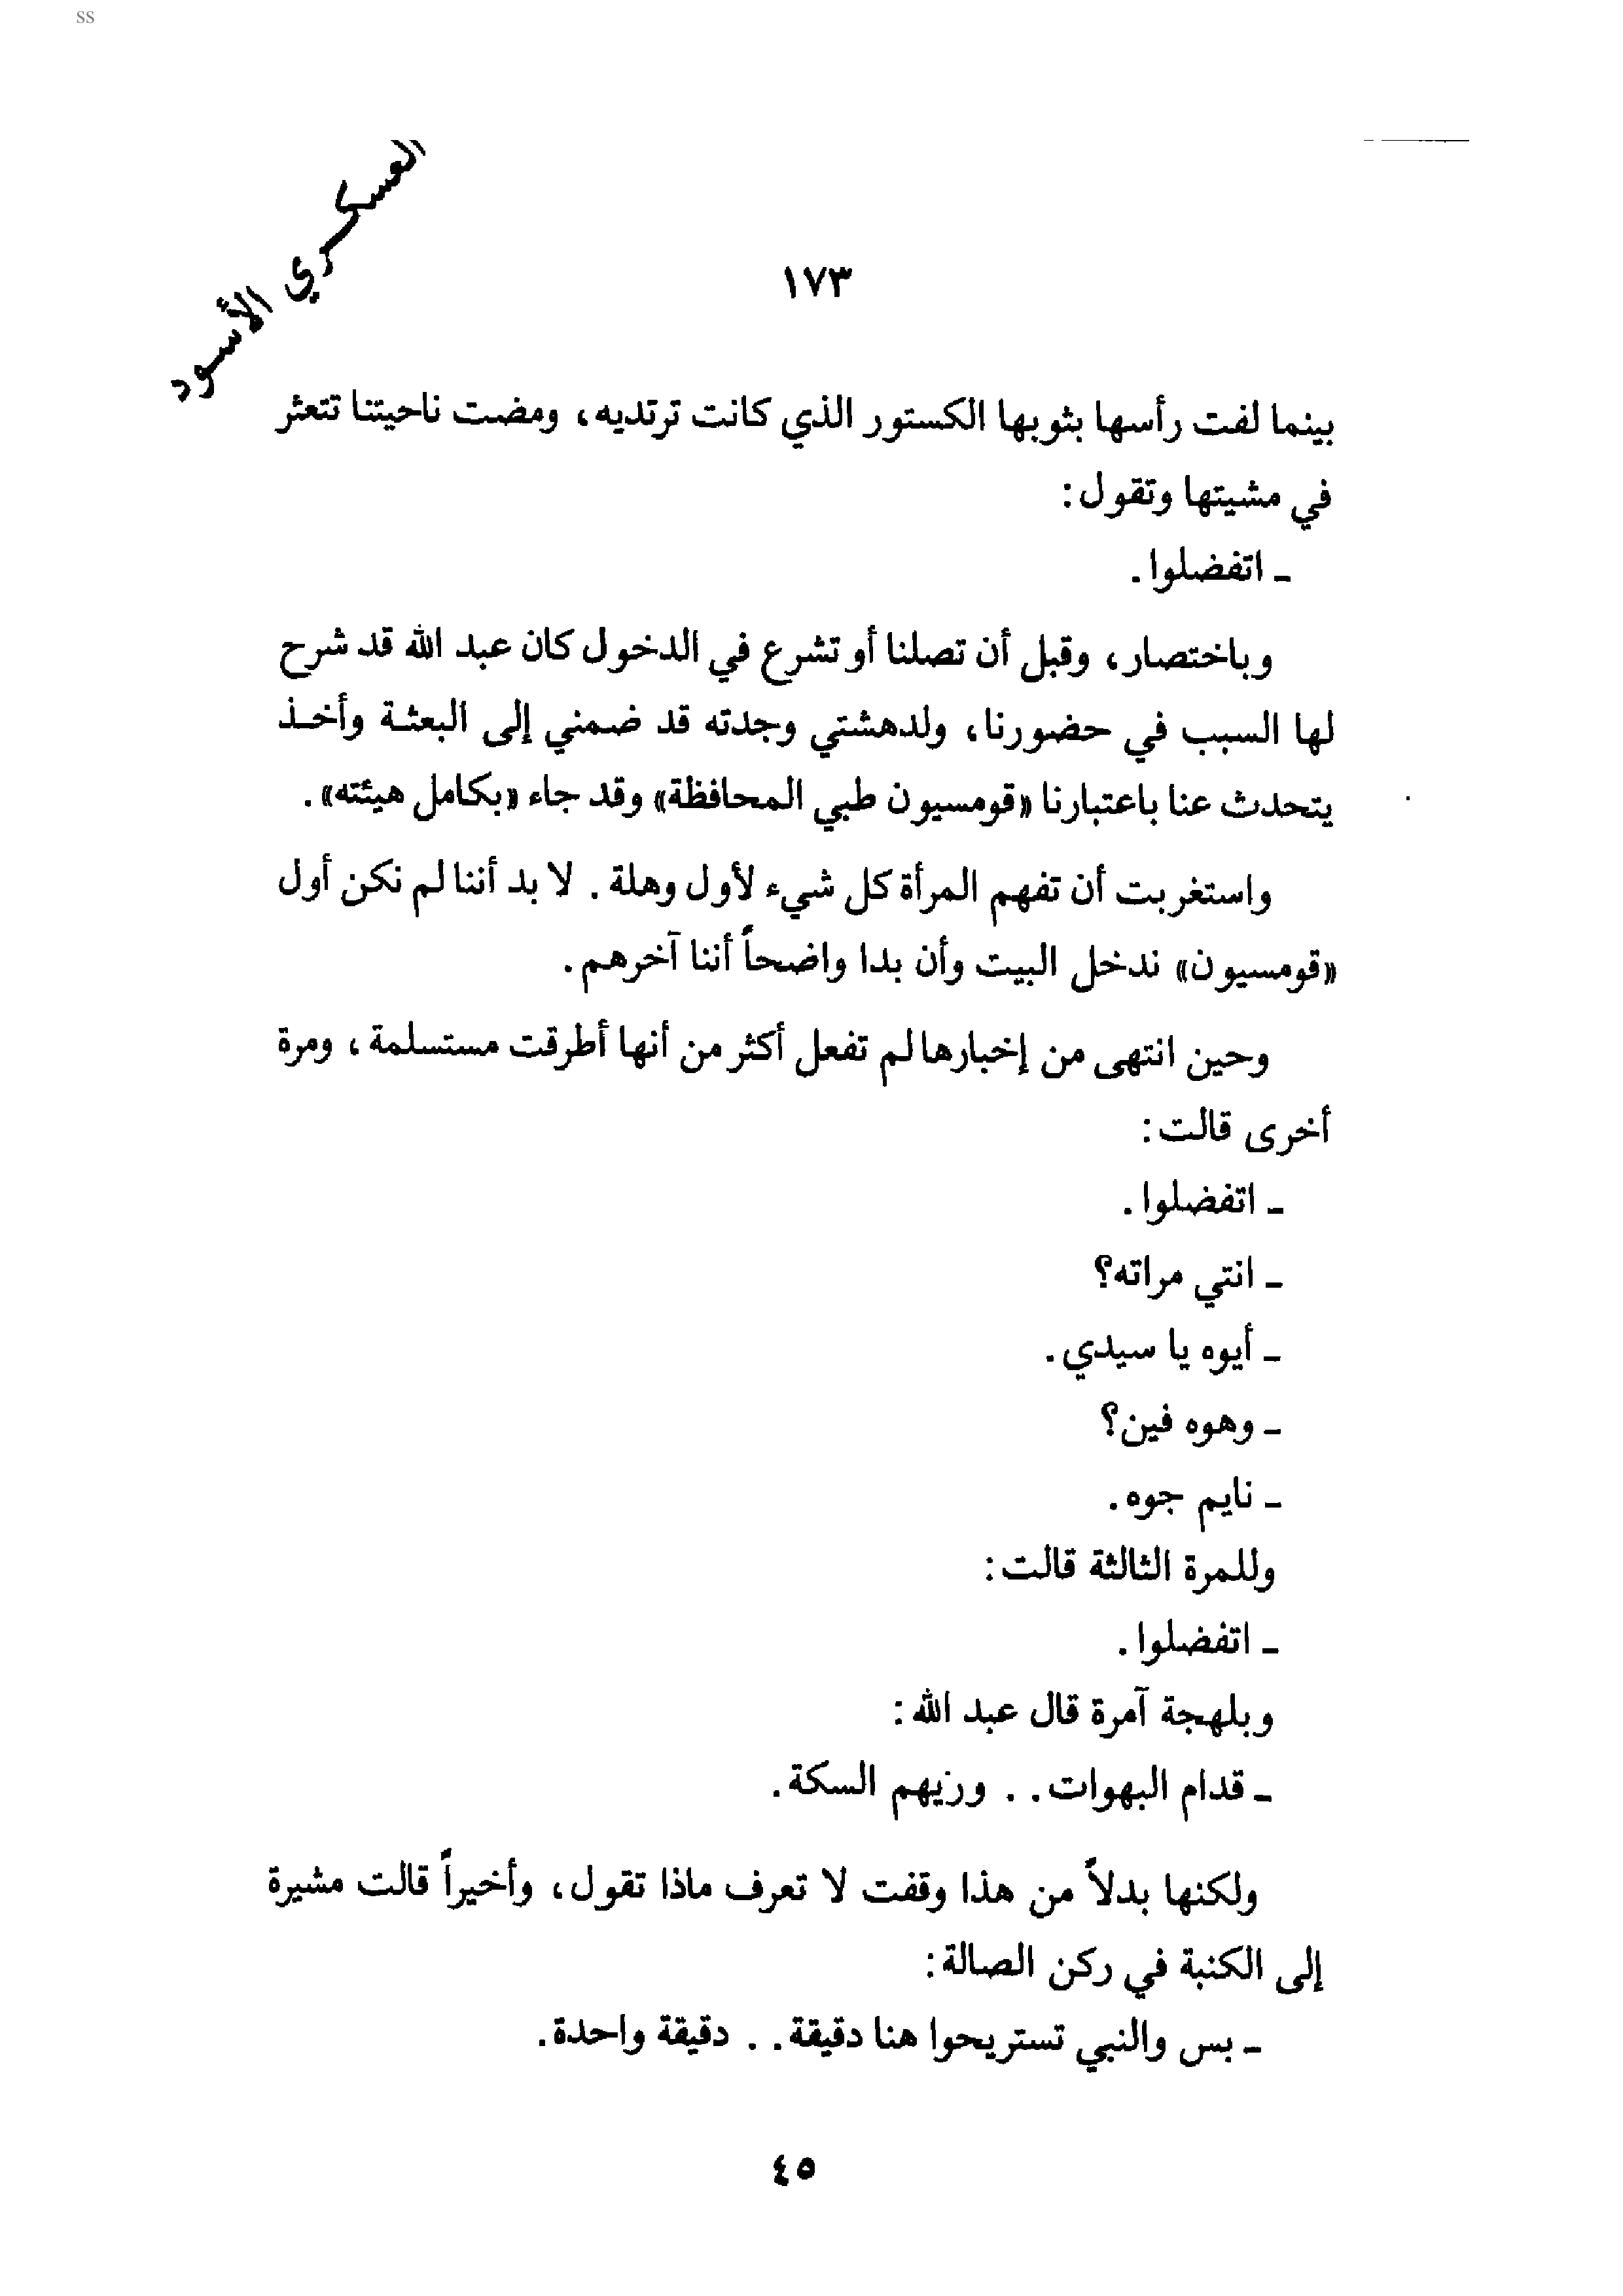 ss
العسكري الأسود
١٧٣
بينما لفت رأسها بثوبها الكستور الذي كانت ترتديه، ومضت ناحيتنا تتعثر
في مشيتها وتقول:
ـ اتفضلوا.
وباختصار، وقبل أن تصلنا أو تشرع في الدخول كان عبد الله قد شرح
لها السبب في حضورنا، ولدهشتي وجدته قد ضمني إلى البعثة وأخذ
يتحدث عنا باعتبارنا «قومسيون طبي المحافظة» وقد جاء «بكامل هيئته».
واستغربت أن تفهم المرأة كل شيء لأول وهلة. لا بد أننا لم نكن أول
«قومسيون» ندخل البيت وأن بدا واضحاً أننا آخرهم.
وحين انتهى من إخبارها لم تفعل أكثر من أنها أطرقت مستسلمة، ومرة
أخرى قالت:
ـ اتفضلوا.
ـ انتي مراته؟
ـ أيوه يا سيدي.
ـ وهوه فين؟
ـ نايم جوه.
وللمرة الثالثة قالت:
ـ اتفضلوا.
وبلهجة آمرة قال عبد الله:
ـ قدام البهوات.. وريهم السكة.
ولكنها بدلاً من هذا وقفت لا تعرف ماذا تقول، وأخيراً قالت مشيرة
إلى الكنبة في ركن الصالة:
ـ بس والنبي تستريحوا هنا دقيقة.. دقيقة واحدة.
٤٥